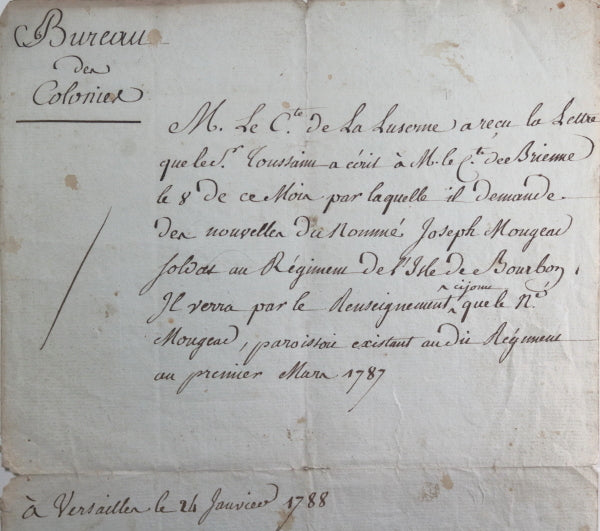 Bureau
des
Colonies
M. Le C.te de La Luserne a reçu la Lettre
que le S.r Toussaint a écrit à M. le C.te de Brienne
le 8 de ce Mois par laquelle il demande
des nouvelles du Nommé Joseph Mougead
soldat au Régiment de l'Isle de Bourbon,
Il verra par le Renseignement cijoint que le N.é
Mougead, paroissoit existant audit Régiment
au premier Mars 1787
à Versailles le 24 Janvier 1788